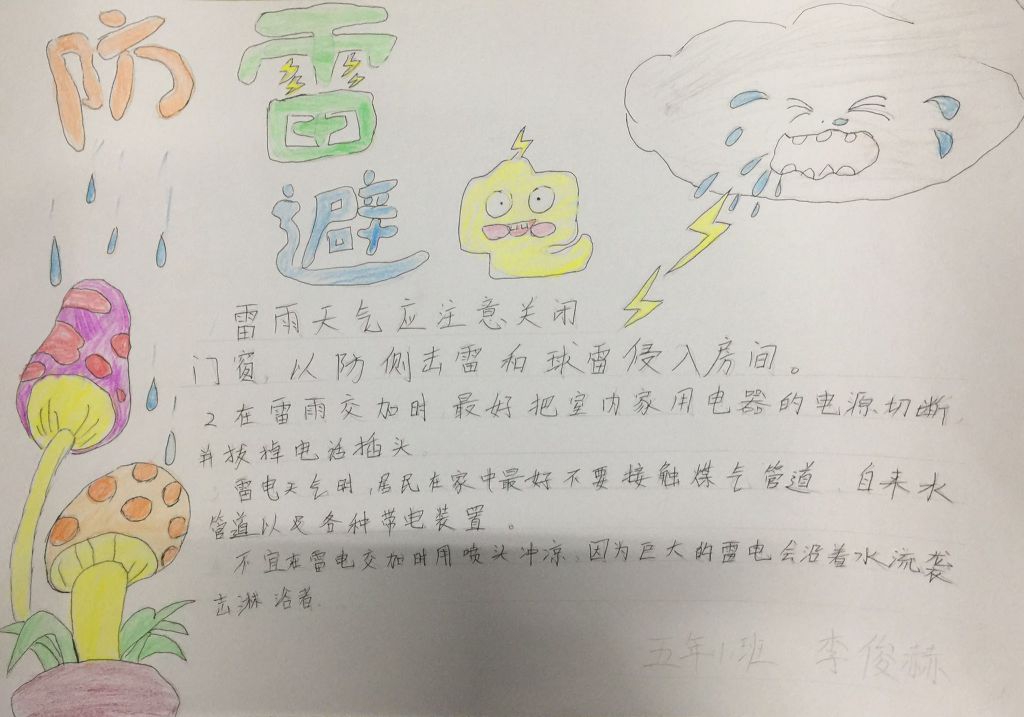 防雷
避电
雷雨天气应注意关闭
门窗,以防侧击雷和球雷侵入房间。
2在雷雨交加时,最好把室内家用电器的电源切断,
并拔掉电话插头。
雷电天气时,居民在家中最好不要接触煤气管道、自来水
管道以及各种带电装置。
不宜在雷电交加时用喷头冲凉,因为巨大的雷电会沿着水流袭
击淋浴者.
五年1班 李俊赫